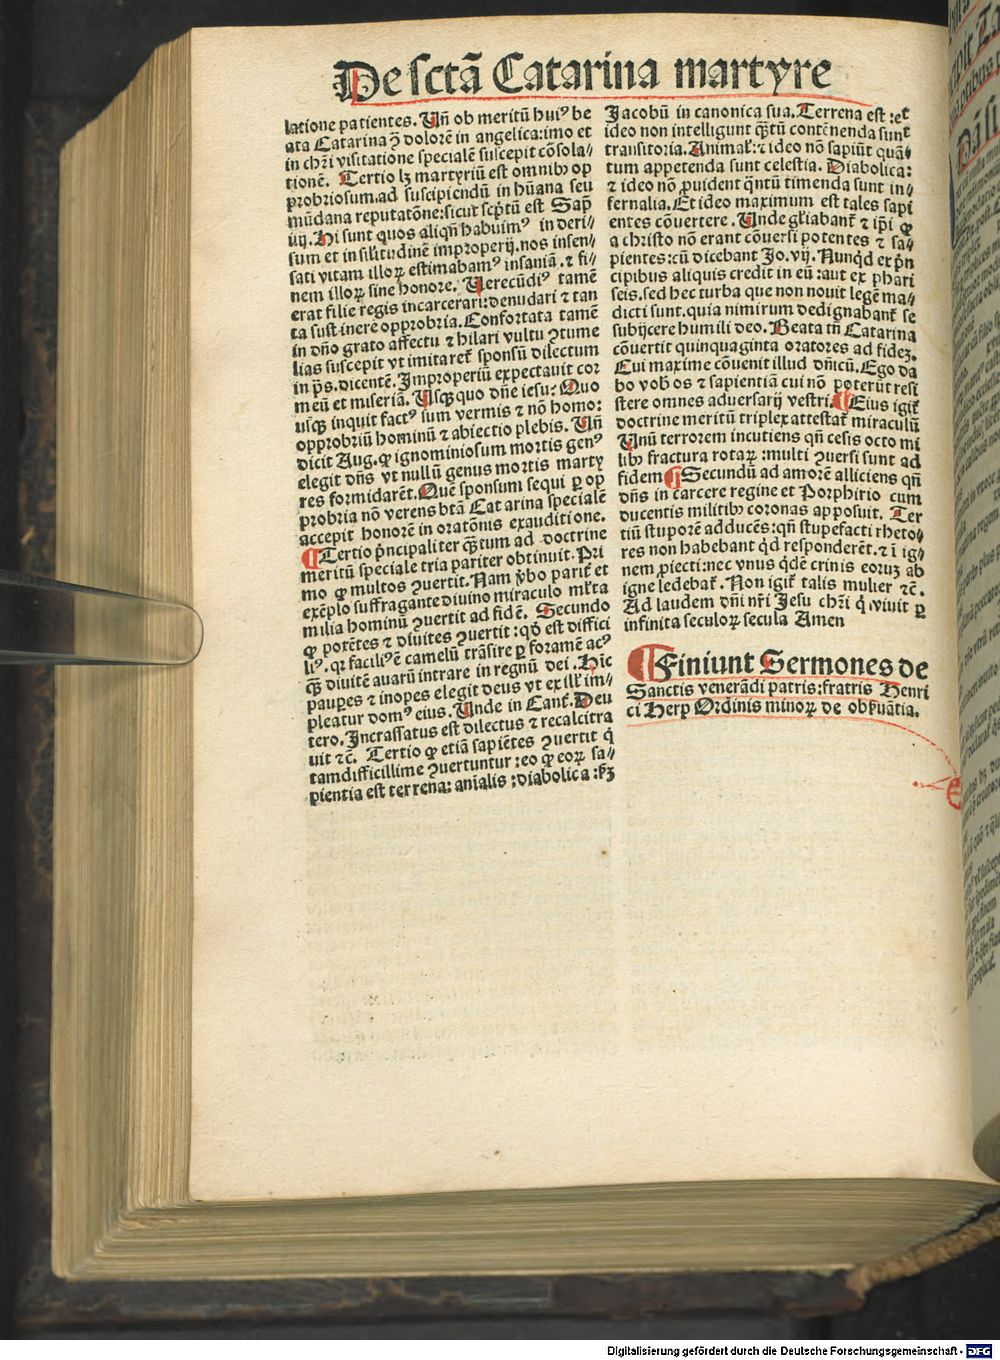 De sctā Catarina martyre
latione patientes. Vñ ob meritū huiꝰ be
ata Catarina ꝯ dolorē in angelica: imo et
in chři visitatione specialē suscepit cōsola⸗
tionē. Tertio lꝫ martyriū est omnibꝰ op
probriosum. ad suscipiendū in hūana seu
mūdana reputatōne: sicut scptū est Sap̄
iiij. Hi sunt quos aliqñ habuimꝰ in deri⸗
sum et in silitudinē improperij. nos insen⸗
sati vitam illoꝝ estimabamꝰ insaniā. ⁊ fi⸗
nem illoꝝ sine honore. Verecūdiꝰ tamē
erat filie regis incarcerari: denudari ⁊ tan
ta sustinere opprobria. Confortata tamē
in dño grato affectu ⁊ hilari vultu ꝯtume
lias suscepit vt imitaret̃ sponsū dilectum
in p̄s. dicentē. Improperiū expectauit cor
meū et miseriā. Vsqꝫ quo dñe iesu: Quo
usqꝫ inquit factꝰ sum vermis ⁊ nō homo:
opprobriū hominū ⁊ abiectio plebis. Vñ
dicit Aug. ꝙ ignominiosum mortis genꝰ
elegit dñs vt nullū genus mortis marty
res formidarēt. Quē sponsum sequi ꝑ op
probria nō verens btā Catarina specialē
accepit honorē in oratōnis exauditione.
¶ Tertio p̓ncipaliter qꝫtum ad doctrine
meritū speciale tria pariter obtinuit. Pri
mo ꝙ multos ꝯuertit. Nam v̓bo parit̃ et
exēplo suffragante diuino miraculo ml̓ta
milia hominū ꝯuertit ad fidē. Secundo
ꝙ potētes ⁊ diuites ꝯuertit: qd̓ est diffici
liꝰ. qꝛ faciliꝰ ē camelū trāsire ꝑ foramē acꝰ
qꝫ diuitē auarū intrare in regnū dei. Hic
pauꝑes ⁊ inopes elegit deus vt ex ill̓ im⸗
pleatur domꝰ eius. Vnde in Cant̃. Deu
tero. Incrassatus est dilectus ⁊ recalcitra
uit ⁊c̄. Tertio ꝙ etiā sapiētes ꝯuertit q̓
tamdifficillime ꝯuertuntur: eo ꝙ eoꝝ sa⸗
pientia est terrena: aīalis: diabolica: ẜꝫ
Jacobū in canonica sua. Terrena est: et
ideo non intelligunt qꝫtū contēnenda sunt
transitoria. Animal̓: ⁊ ideo nō sapiūt quā⸗
tum appetenda sunt celestia. Diabolica:
⁊ ideo nō ꝓuident qntū timenda sunt in⸗
fernalia. Et ideo maximum est tales sapi
entes cōuertere. Vnde gl̓iabant̃ ⁊ ip̄i ꝙ
a christo nō erant cōuersi potentes ⁊ sa⸗
pientes: cū dicebant Jo. vij. Nunqd̓ ex p̓n
cipibus aliquis credit in eū: aut ex phari
seis. sed hec turba que non nouit legē ma⸗
dicti sunt. quia nimirum dedignabant̃ se
subijcere humili deo. Beata tñ Catarina
cōuertit quinquaginta oratores ad fidez.
Cui maxime cōuenit illud dñicū. Ego da
bo vob̓ os ⁊ sapientiā cui nō poterūt resi
stere omnes aduersarij vestri. ¶ Eius igit̃
doctrine meritū triplex attestat̃ miraculū
Vnū terrorem incutiens qñ cesis octo mi
libꝰ fractura rotaꝝ: multi ꝯuersi sunt ad
fidem ¶ Secundū ad amorē alliciens qñ
dñs in carcere regine et Porphirio cum
ducentis militibꝰ coronas apposuit. Ter
tiū stuporē adducēs: qñ stupefacti rheto⸗
res non habebant qd̓ responderēt. ⁊ ī ig⸗
nem ꝓiecti: nec vnus qdē crinis eoruz ab
igne ledebat̃. Non igit̃ talis mulier ⁊c̄.
Ad laudem dñi nr̄i Jesu chři q̓ viuit ꝑ
infinita seculoꝝ secula Amen
¶ Finiunt Sermones de
Sanctis venerādi patris: fratris Henri
ci Herp Ordinis minoꝝ de obẜuātia.
Digitalisierung gefördert durch die Deutsche Forschungsgemeinschaft - DFG